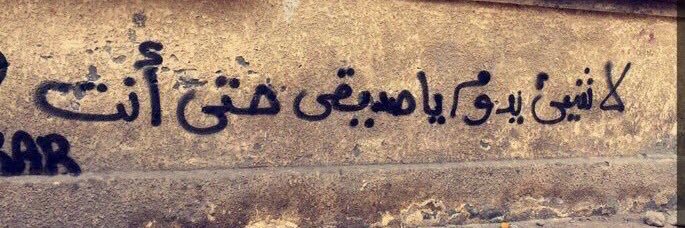 لا شيئ يدوم ياصديقى حتى أنت
BAR